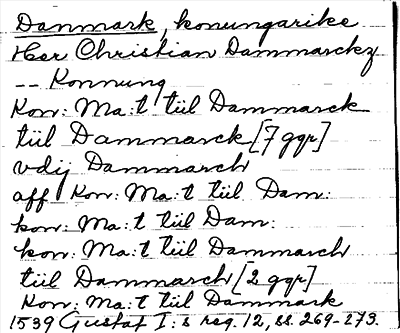 Danmark, konungarike
Her Christian Dammarckz
-- Konnung
Kon: Ma:t tiil Dammarck
tiil Dammarck [7 ggr]
vdij Dammarch
aff Kon: Ma:t tiil Dam:
kon: Ma:t tiil Dam:
kon: Ma:t tiil Dammarch
tiil Dammarch [2 ggr]
Kon: Ma:t tiil Dammark
1539 Gustaf I:s reg. 12, ss. 269-273.